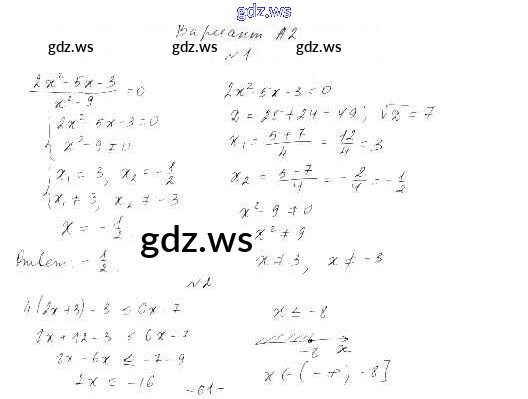 gdz.ws
Вариант А2
gdz.ws gdz.ws
№1
(2x² - 5x - 3)/(x² - 9) = 0
{ 2x² - 5x - 3 = 0
x² - 9 ≠ 0
{ x₁ = 3, x₂ = -1/2
x₁ ≠ 3, x₂ ≠ -3
x = -1/2
Ответ: -1/2.
2x² - 5x - 3 = 0
D = 25 + 24 = 49; √D = 7
x₁ = (5+7)/4 = 12/4 = 3
x₂ = (5-7)/4 = -2/4 = -1/2
x² - 9 ≠ 0
x² ≠ 9
x ≠ 3, x ≠ -3
gdz.ws
№2
4(2x+3) - 3 ≤ 6x - 7
8x + 12 - 3 ≤ 6x - 7
8x - 6x ≤ -7 - 9
2x ≤ -16
x ≤ -8
-8 x
x ∈ (-∞; -8]
-61-